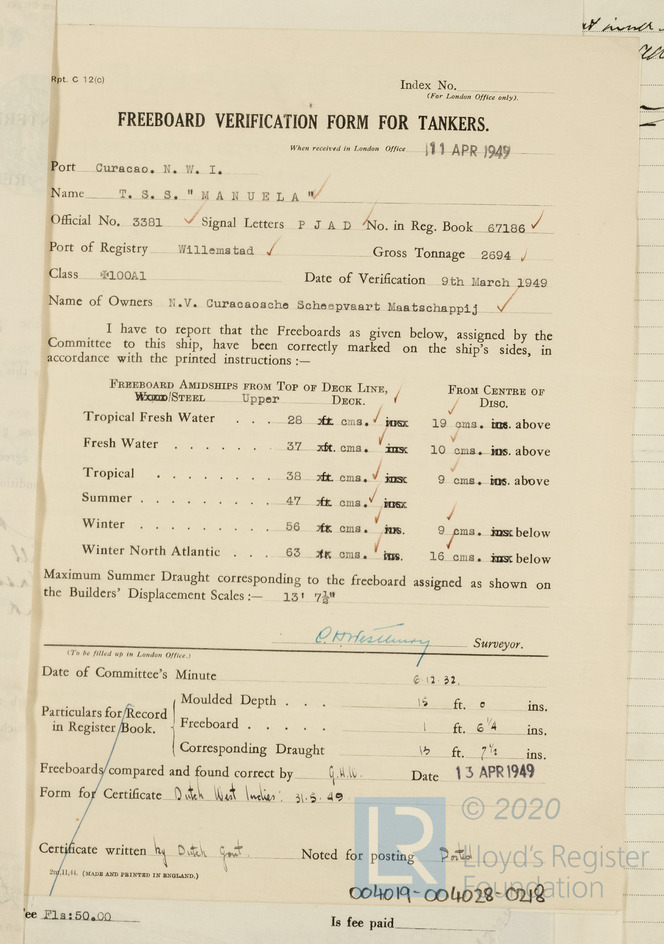 Rpt. C 12(c)
Index No.
(For London Office only).
FREEBOARD VERIFICATION FORM FOR TANKERS.
When received in London Office 11 APR 1949
Port Curacao. N. W. I.
Name T. S. S. " M A N U E L A "
Official No. 3381 Signal Letters P J A D No. in Reg. Book 67186
Port of Registry Willemstad Gross Tonnage 2694
Class ✠100A1 Date of Verification 9th March 1949
Name of Owners N.V. Curacaosche Scheepvaart Maatschappij
I have to report that the Freeboards as given below, assigned by the
Committee to this ship, have been correctly marked on the ship's sides, in
accordance with the printed instructions :—
Freeboard Amidships from Top of Deck Line, From Centre of
Wood/Steel Upper Deck. Disc.
Tropical Fresh Water . . . 28 ft. cms. ins. 19 cms. ins. above
Fresh Water . . . . . . 37 ft. cms. ins. 10 cms. ins. above
Tropical . . . . . . . 38 ft. cms. ins. 9 cms. ins. above
Summer . . . . . . . . 47 ft. cms. ins.
Winter . . . . . . . . 56 ft. cms. ins. 9 cms. ins. below
Winter North Atlantic . . . 63 ft. cms. ins. 16 cms. ins. below
Maximum Summer Draught corresponding to the freeboard assigned as shown on
the Builders' Displacement Scales :— 13' 7½"
Surveyor.
(To be filled up in London Office.)
Date of Committee's Minute 6.12.32.
Particulars for Record in Register Book.
Moulded Depth . . . 15 ft. 0 ins.
Freeboard . . . . . 1 ft. 6¼ ins.
Corresponding Draught 13 ft. 7½ ins.
Freeboards compared and found correct by G.H.W. Date 13 APR 1949
Form for Certificate Dutch West Indies: 31.5.49
Certificate written by Dutch Govt. Noted for posting Posted
2m,11,44. (MADE AND PRINTED IN ENGLAND.)
LR © 2020
Lloyd's Register
Foundation
004019-004028-0218
ee Fls:50.00
Is fee paid